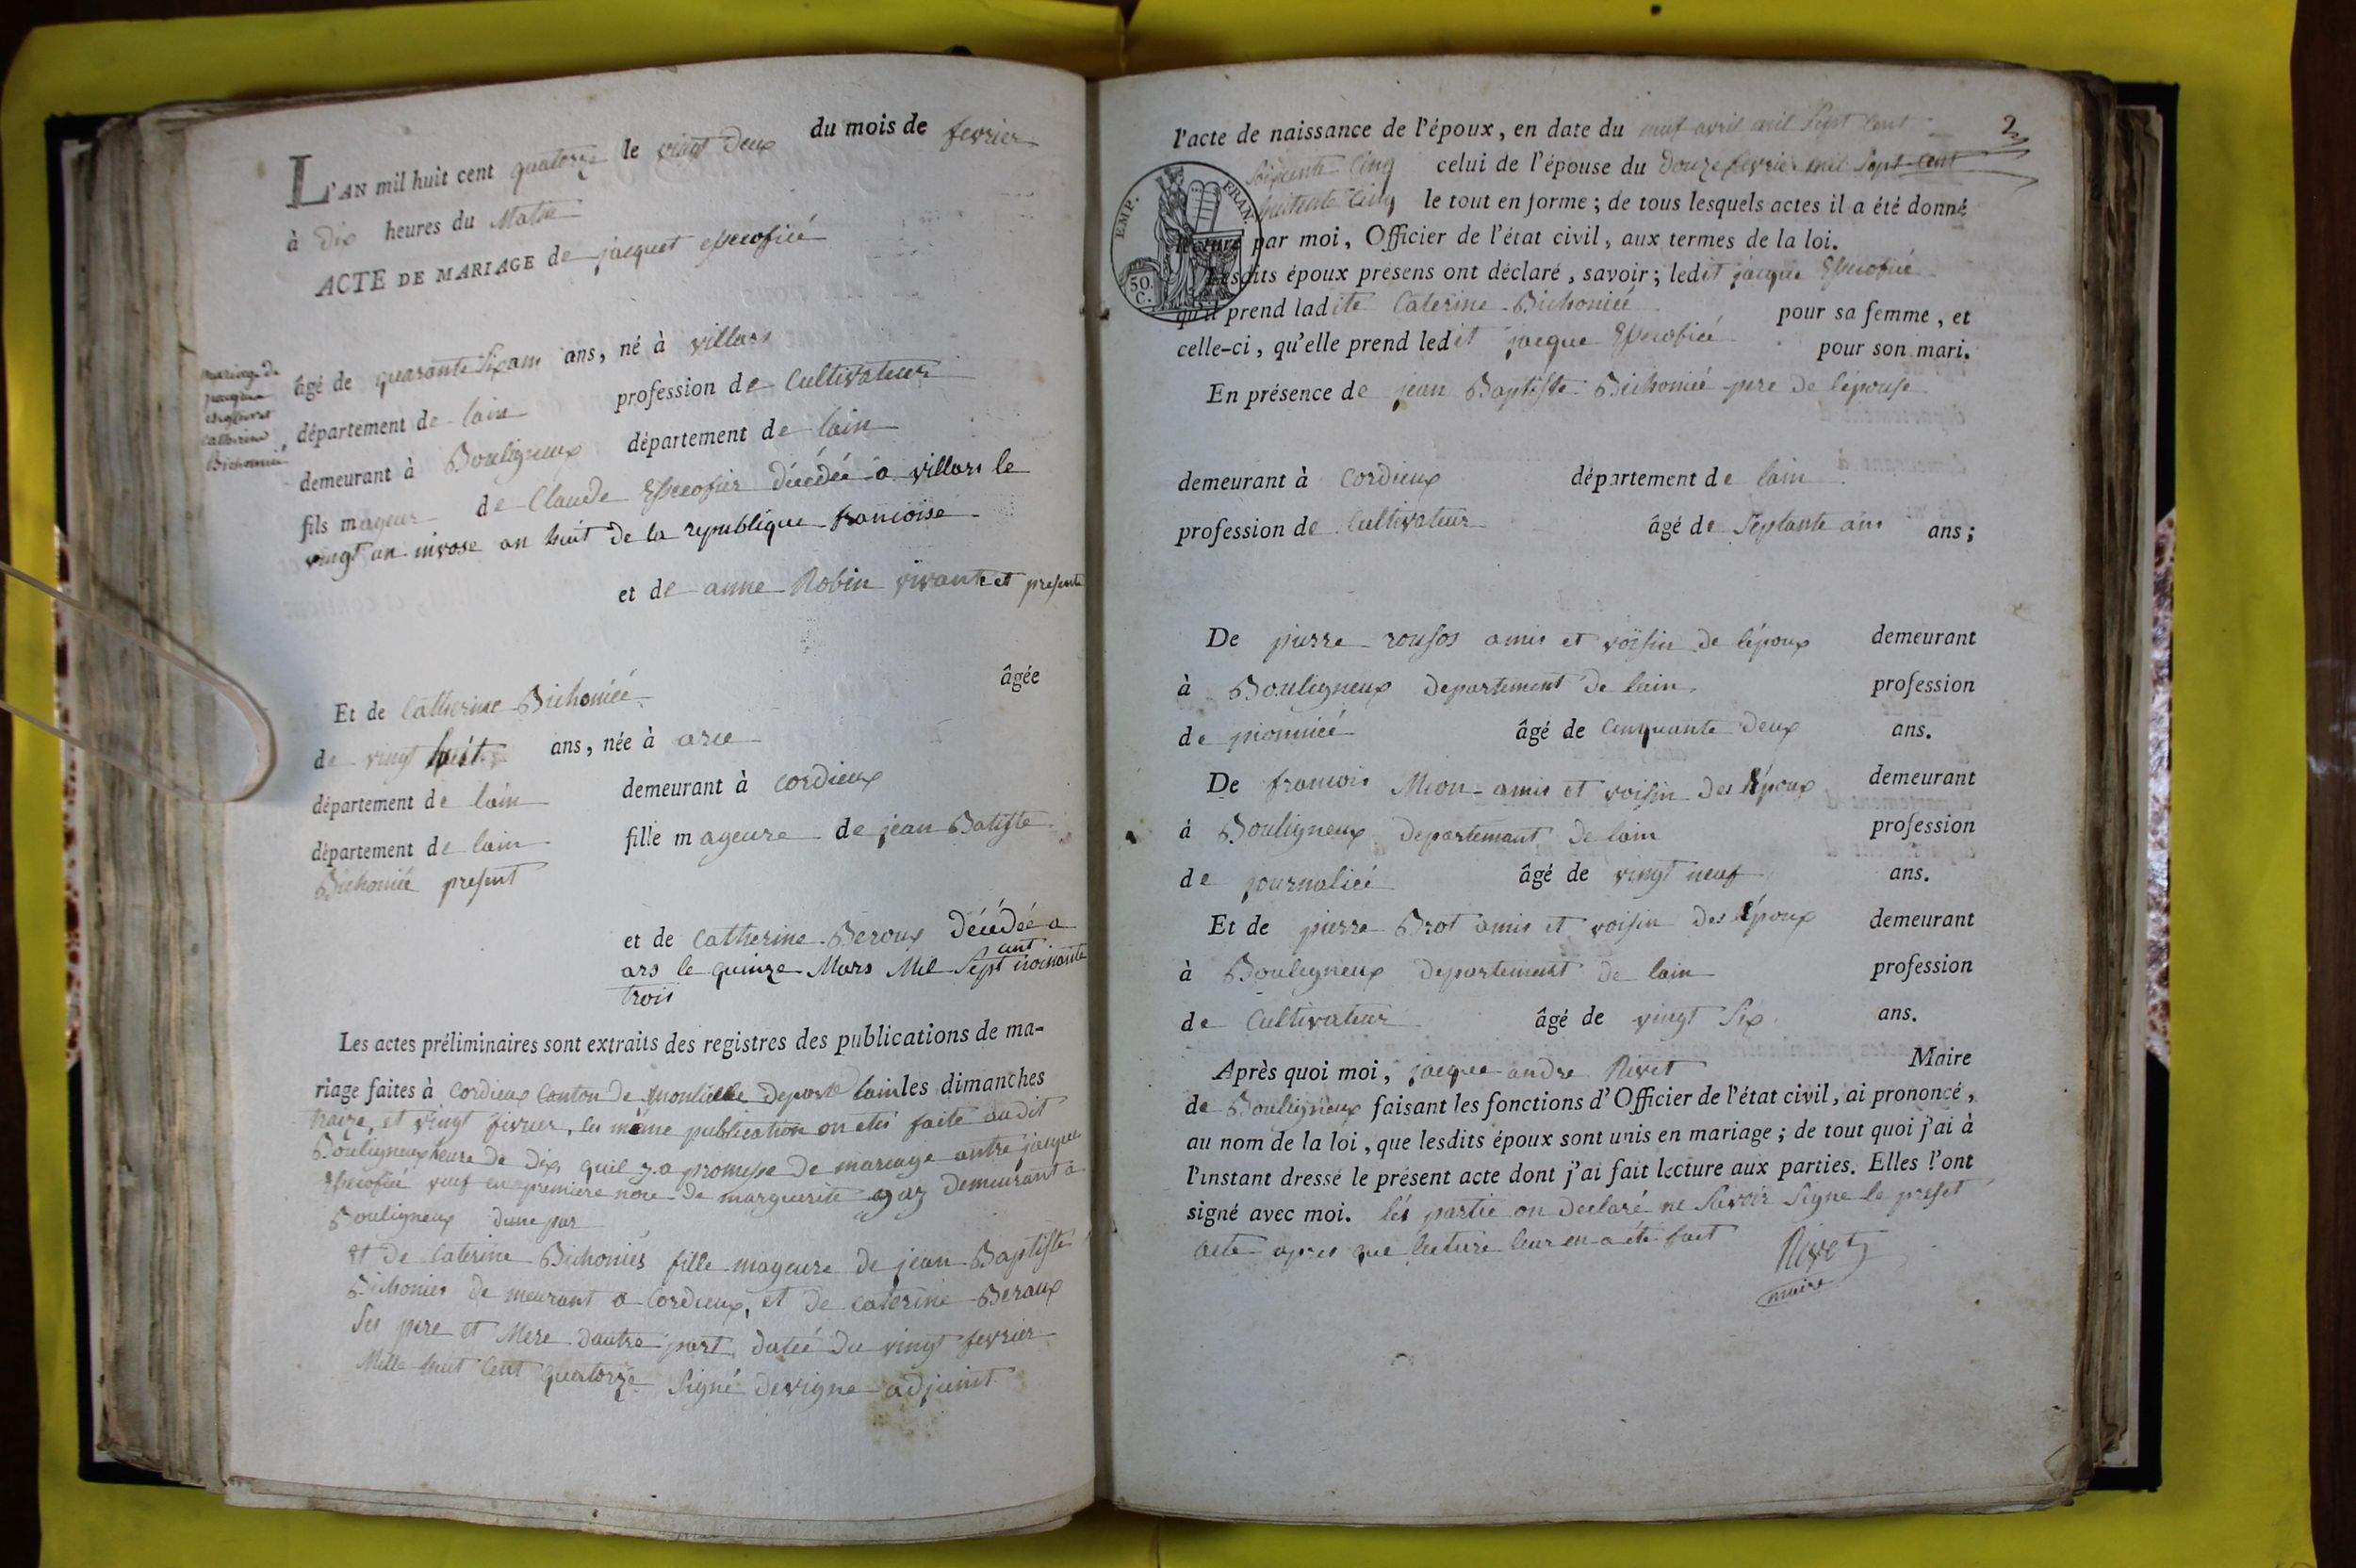 L'AN mil huit cent quatorze le vingt deux du mois de fevrier
à Dix heures du Matin
ACTE DE MARIAGE de jacquet
mariage de
Catherine
Bichonié
âgé de quarante Six ans ans, né à villars
département de lain profession de Cultivateur
demeurant à Bouligneux département de lain
fils mageur de Claude décédée a villars le
vingt un nivose an huit de la republique francoise
et de anne Robin vivante et presente
Et de Catherine Bichoniée âgée
de vingt huit ans, née à
département de lain demeurant à Cordieux
département de lain fille mageure de jean Batiste
Bichoniée present
et de Catherine Beroux décédée a
ars le quinze Mars Mil Sept cent
trois
Les actes préliminaires sont extraits des registres des publications de ma-
riage faites à Cordieux Canton de lain les dimanches
et vingt fevrier, la même publication on etés faite audit
Bouligneux heure de dix quil y a promesse de mariage entre jacque
veuf en premiere de marguerite gaz demeurant à
Bouligneux dune par
et de Caterine Bichoniés fille mageure de jean Baptiste
Bichonies de meurant a Cordieux, et de Caterine Beraux
Ses pere et Mere dautre part, datée du vingt fevrier
Mille huit Cent quatorze Signé devigne adjuint
2
l'acte de naissance de l'époux, en date du neuf avril mil Sept Cent
Soixante Cinq celui de l'épouse du Douze fevrier mil Sept cent
huitente Cinq le tout en forme ; de tous lesquels actes il a été donné
EMP. FRAN. 50. C.
lecture par moi, Officier de l'état civil, aux termes de la loi.
Lesdits époux présens ont déclaré, savoir ; ledit jacque
qu'il prend ladite Caterine Bichoniéé pour sa femme, et
celle-ci, qu'elle prend ledit jacque pour son mari.
En présence de jean Baptiste Bichonieé pere de lépouse
demeurant à Cordieux département de lain
profession de Cultivateur âgé de Septante ans ans ;
De pierre rousos amis et voisin de lépoux demeurant
à Bouligneux departement de lain profession
de âgé de Cinquante Deux ans.
De francois Mion amis et voisin des époux demeurant
à Bouligneux departemant de lain profession
de journalieé âgé de vingt neuf ans.
Et de pierre Brot amis et voisin des époux demeurant
à Bouligneux departement de lain profession
de Cultivateur âgé de vingt Six ans.
Après quoi moi, jacque andre Rivet Maire
de Bouligneux faisant les fonctions d'Officier de l'état civil, ai prononcé,
au nom de la loi, que lesdits époux sont unis en mariage ; de tout quoi j'ai à
l'instant dressé le présent acte dont j'ai fait lecture aux parties. Elles l'ont
signé avec moi. lés partie on declaré ne Savoir Signe le preset
acte apres que lecture leur en a été fait Rivet
maire